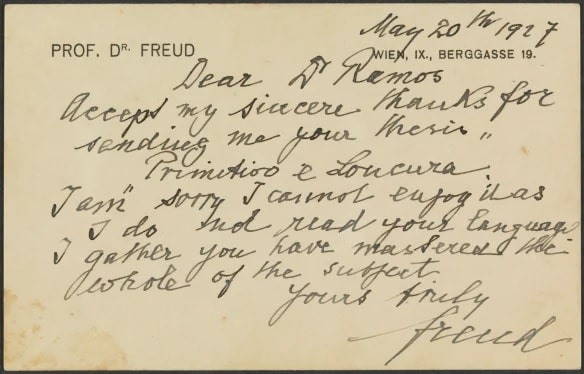 May 20th 1927
PROF. DR. FREUD
WIEN, IX., BERGGASSE 19.
Dear Dr Ramos
Accept my sincere thanks for
sending me your thesis „
Primitivo e Loucura
I am" sorry I cannot enjoy it as
I do not read your language
I gather you have mastered the
whole of the subject
Yours truly
Freud